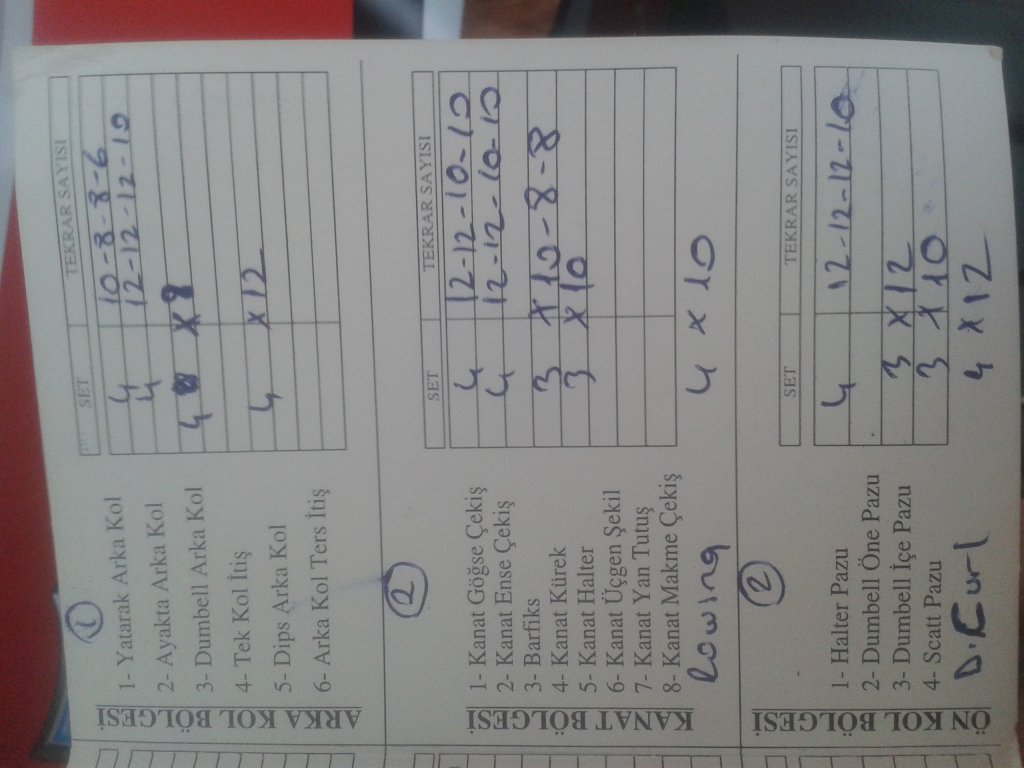 ARKA KOL BÖLGESİ
1
SET TEKRAR SAYISI
1- Yatarak Arka Kol 4 10-8-8-6
2- Ayakta Arka Kol 4 12-12-12-10
3- Dumbell Arka Kol 4 x 8
4- Tek Kol İtiş
5- Dips Arka Kol 4 x 12
6- Arka Kol Ters İtiş
KANAT BÖLGESİ
2
SET TEKRAR SAYISI
1- Kanat Göğse Çekiş 4 12-12-10-10
2- Kanat Ense Çekiş 4 12-12-10-10
3- Barfiks
4- Kanat Kürek 3 x 10-8-8
5- Kanat Halter 3 x 10
6- Kanat Üçgen Şekil
7- Kanat Yan Tutuş
8- Kanat Makme Çekiş
Rowing 4 x 10
ÖN KOL BÖLGESİ
2
SET TEKRAR SAYISI
1- Halter Pazu 4 12-12-12-10
2- Dumbell Öne Pazu
3- Dumbell İçe Pazu 3 x 12
4- Scatt Pazu 3 x 10
D. Curl 4 x 12